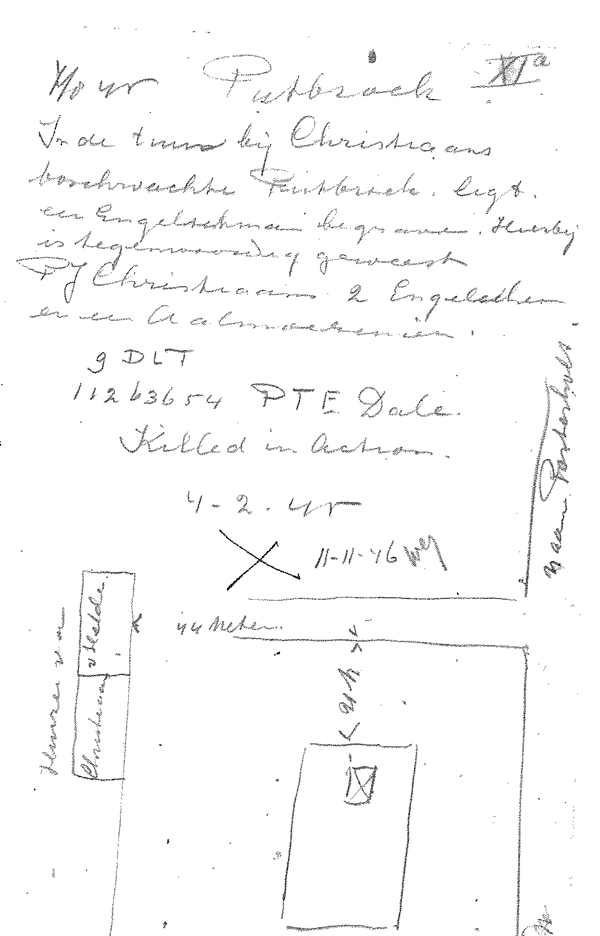 Putbroek XIa
In de tuin bij Christiaans
boschwachter Putbroek. ligt.
een Engelschman begraven. Hierbij
is tegenwoordig geweest
PJ Christiaans 2 Engelschen
en een Aalmoezenier.
9 DLT
11263654 PTE Dale.
Killed in Action.
4-2-45
11-11-46
naar Posterholt.
44 Meter.
Huizen van
v Helde.
Christiaan